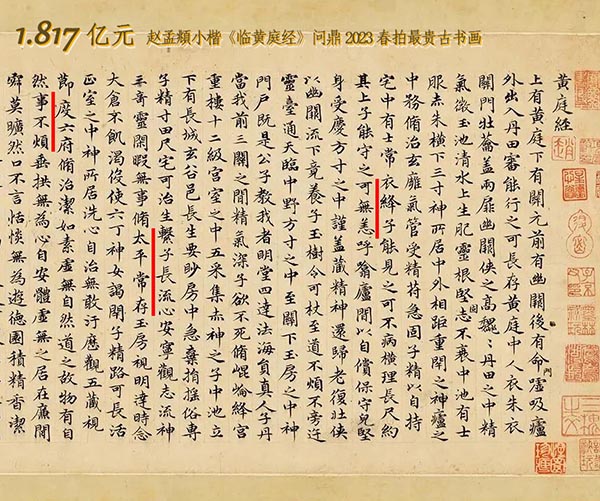 1.817 亿元 赵孟頫小楷《临黄庭经》问鼎2023春拍最贵古书画
黄庭經
上有黄庭下有關元前有幽關後有命噓吸廬
外出入丹田審能行之可長存黄庭中人衣朱衣
關門壯蘥盖兩扉幽關俠之高巍〻丹田之中精
氣微玉池清水上生肥靈根堅志不衰中池有士
服赤朱横下三寸神所居中外相距重閉之神廬之
中務脩治玄廱氣管受精符急固子精以自持
宅中有士常衣絳子能見之可不病横理長尺約
其上子能守之可無恙呼翕廬間以自償保守皃堅
身受慶方寸之中謹蓋藏精神還歸老復壯俠
以幽關流下竟養子玉樹令可杖至道不煩不旁迕
靈臺通天臨中野方寸之中至關下玉房之中神
門戶既是公子教我者明堂四達法海員真人子丹
當我前三關之間精氣深子欲不死脩崐崘絳宫
重樓十二級宫室之中五采集赤神之子中池立
下有長城玄谷邑長生要眇房中急棄捐摇俗專
子精寸田尺宅可治生繫子長流心安寧觀志流神
三奇靈閒暇無事脩太平常存玉房視明達時念
大倉不飢渴伇使六丁神女謁閉子精路可長活
正室之中神所居洗心自治無敢汙歷觀五藏視
節度六府脩治潔如素虛無自然道之故物有自
然事不煩垂拱無為心自安體虛無之居在廉閒
寂莫曠然口不言恬惔無為遊德園積精香潔